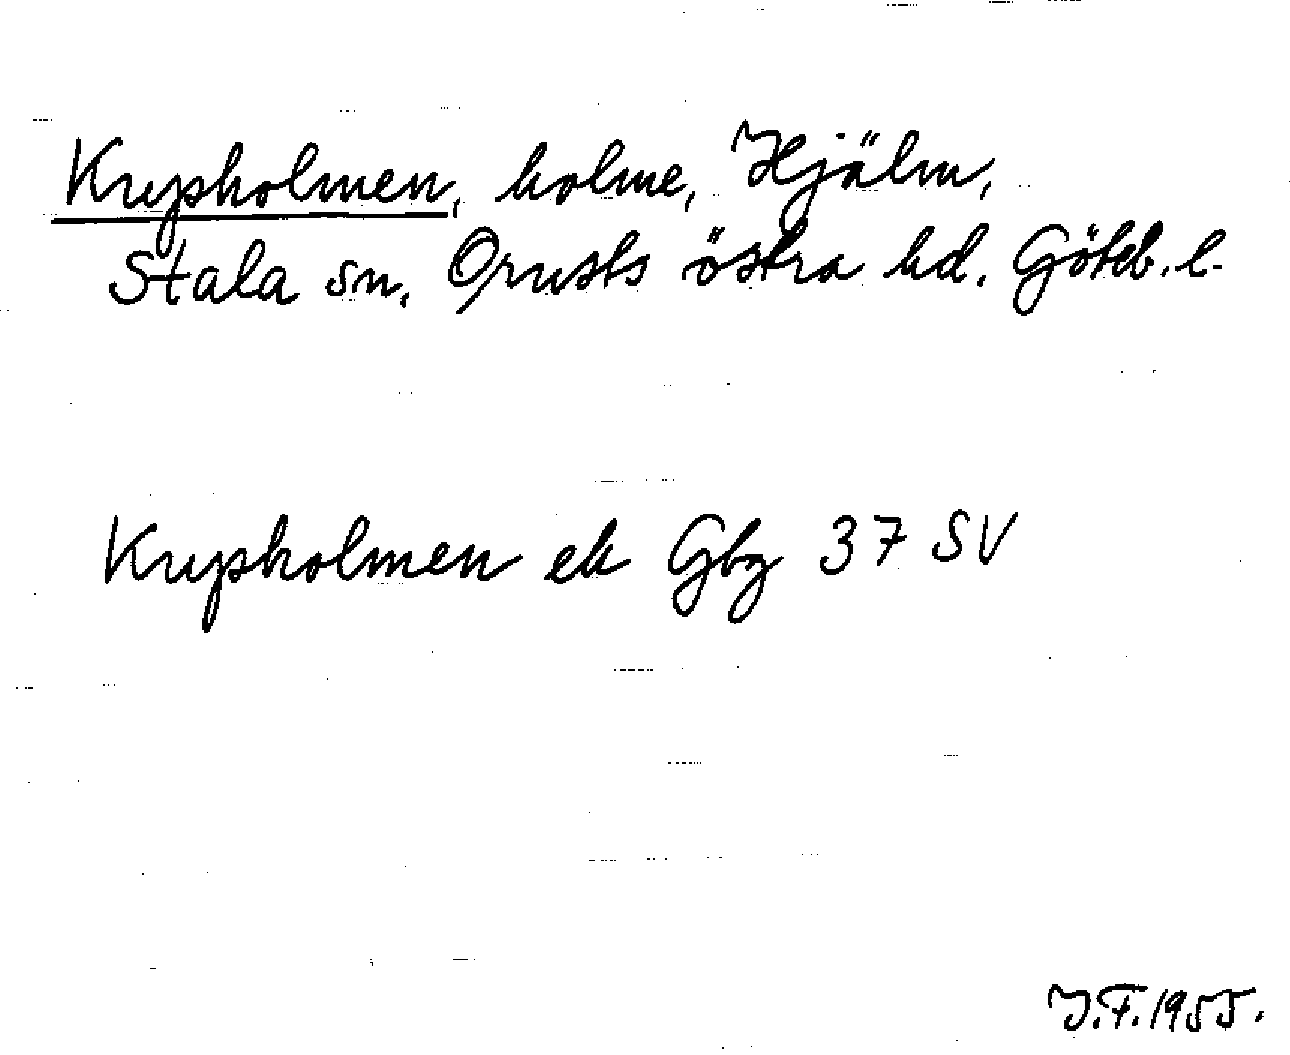 Krypholmen, holme, Hjälm,
Stala sn, Orusts östra hd. Göteb. l.
Krypholmen ek Gbg 37 SV
J.F. 1955.